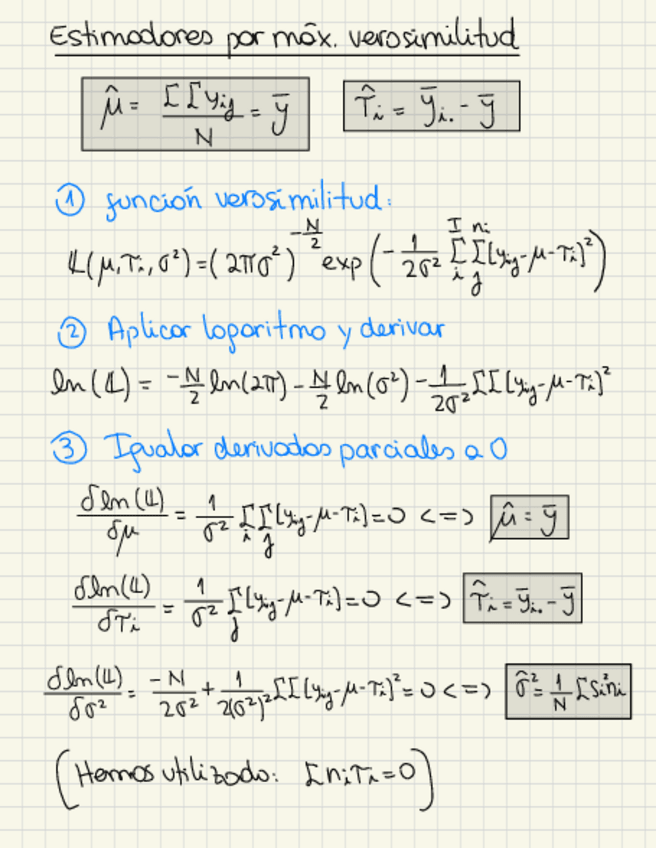 Estimadores por máx. verosimilitud
μ̂ = ΣΣyij / N = ȳ    τ̂i = ȳi. - ȳ
① función verosimilitud:
𝕃(μ, τi, σ²) = (2πσ²)^(-N/2) exp(-1/(2σ²) Σ_i^I Σ_j^ni [yij - μ - τi]²)
② Aplicar logaritmo y derivar
ln(𝕃) = -N/2 ln(2π) - N/2 ln(σ²) - 1/(2σ²) ΣΣ[yij - μ - τi]²
③ Igualar derivadas parciales a 0
δln(𝕃)/δμ = 1/σ² Σ_i Σ_j [yij - μ - τi] = 0 <=> μ̂ = ȳ
δln(𝕃)/δτi = 1/σ² Σ_j [yij - μ - τi] = 0 <=> τ̂i = ȳi. - ȳ
δln(𝕃)/δσ² = -N/(2σ²) + 1/(2(σ²)²) ΣΣ[yij - μ - τi]² = 0 <=> σ̂² = 1/N Σ Si² ni
(Hemos utilizado: Σ ni τi = 0)